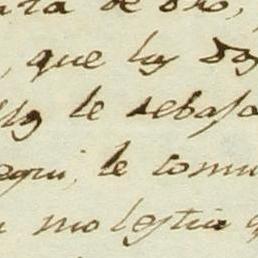 de oro,
, que los dos
le rebaja
equi, le comu
molestia